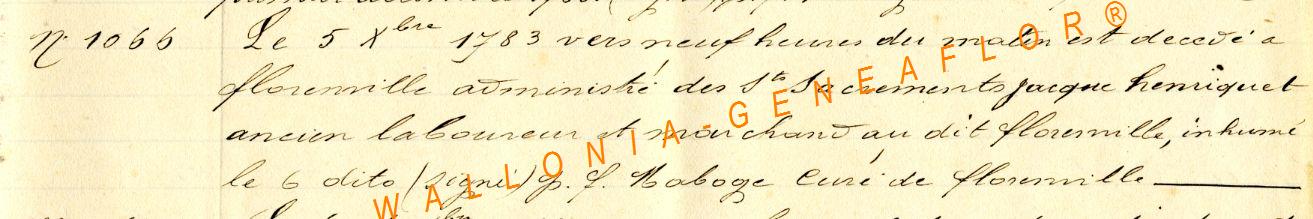 N. 1066 Le 5 Xbre 1783 vers neuf heures du matin est decedé a
florenville administré des Sts Sacrements Jacque henriquet
ancien laboureur et marchand au dit florenville, inhumé
le 6 dito (signé) p. f. Maboge Curé de florenville
WALLONIA-GENEAFLOR®